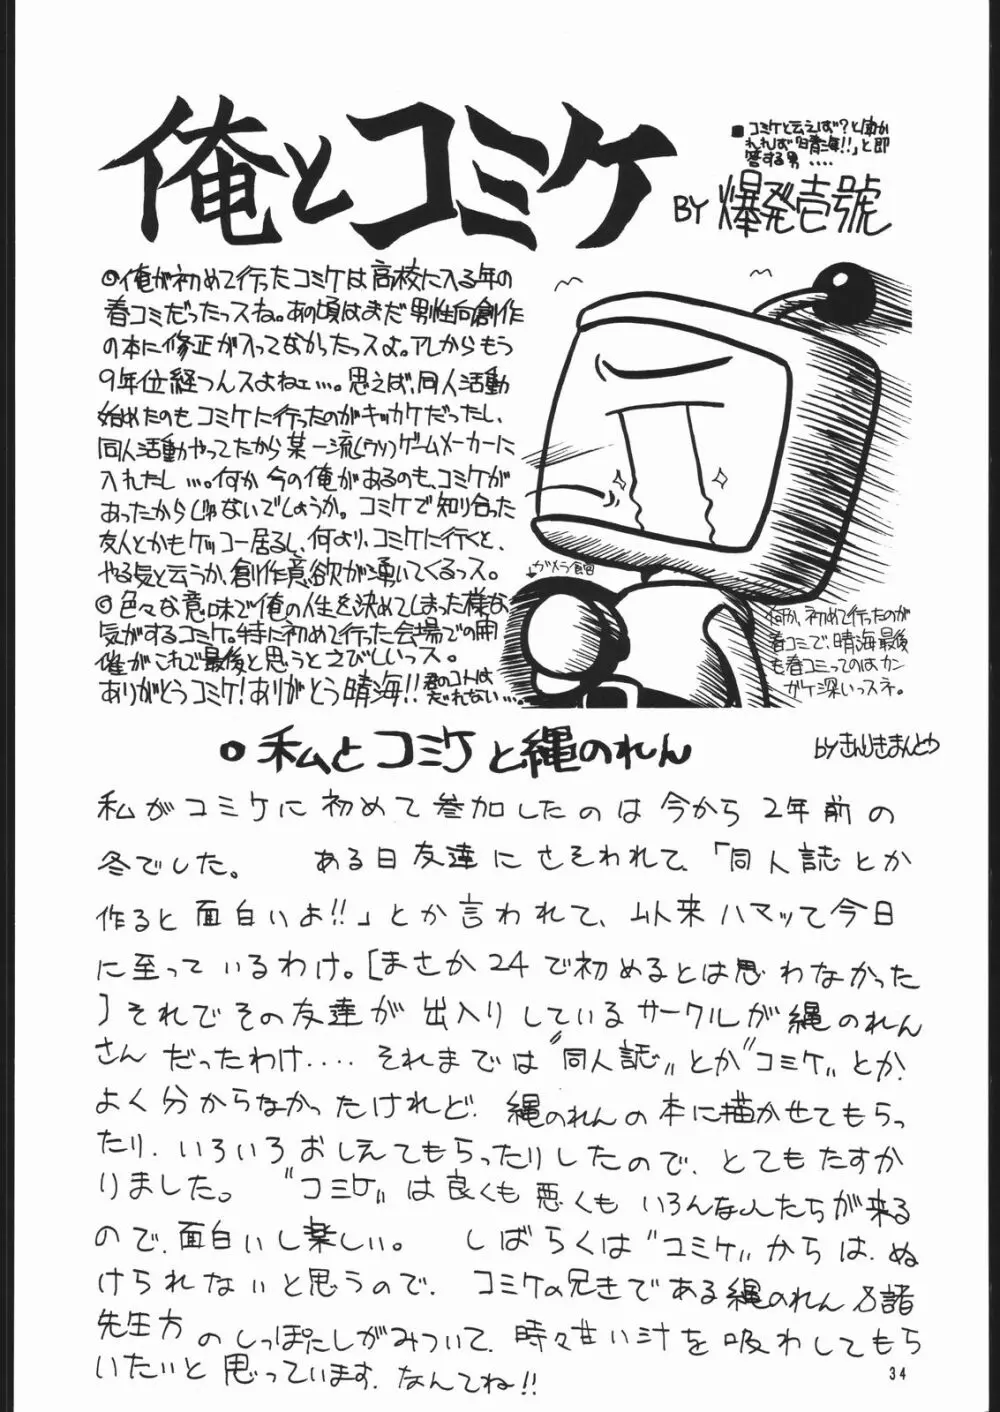 俺とコミケ
■コミケと云えば?と聞か
れれば「晴海!!」と即
答する男....
BY 爆発壱號
◎俺が初めて行ったコミケは高校に入る年の
春コミだったっスね。あの頃はまだ男性向創作
の本に修正が入ってなかったっスよ。アレからもう
9年位経つんスよねェ…。思えば、同人活動
始めたのもコミケに行ったのがキッカケだったし、
同人活動やってたから某一流(ウソ)ゲームメーカーに
入れたし…。何か今の俺があるのも、コミケが
あったからじゃないでしょうか。コミケで知り合った
友人とかもケッコー居るし、何より、コミケに行くと、
やる気と云うか、創作意欲が湧いてくるっス。
◎色々な意味で俺の人生を決めてしまった様な
気がするコミケ。特に初めて行った会場での開
催がこれで最後と思うとさびしいっス。
ありがとうコミケ!ありがとう晴海!!君のコトは
忘れない…。
↓ガメラ館
何か、初めて行ったのが
春コミで、晴海最後
も春コミってのはカン
ガケ深いっスネ。
○私とコミケと縄のれん
byきんじきまんとう
私がコミケに初めて参加したのは今から2年前の
冬でした。 ある日友達にさそわれて、「同人誌とか
作ると面白いよ!!」とか言われて、以来ハマッて今日
に至っているわけ。[まさか24で初めるとは思わなかった
]それでその友達が出入りしているサークルが縄のれん
さんだったわけ.... それまでは"同人誌"とか"コミケ"とか、
よく分からなかったけれど、縄のれんの本に描かせてもらっ
たり、いろいろおしえてもらったりしたので、とてもたすか
りました。 "コミケ"は良くも悪くもいろんな人たちが来る
ので、面白いし楽しい。 しばらくは"コミケ"からは、ぬ
けられないと思うので、コミケの兄きである縄のれん&諸
先生方のしっぽにしがみついて、時々甘い汁を吸わしてもら
いたいと思っています、なんてね!!
34